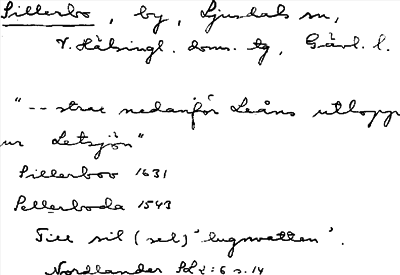 Sillerbo, by, Ljusdals sn,
V. Hälsingl. doms. tg, Gävl. l.
"-- strax nedanför Leåns utlopp
ur Letsjön"
Sillerboo 1631
Sellerboda 1543
Till sil (sel) 'lugnvatten'.
Nordlander NoL 2:6 s. 14